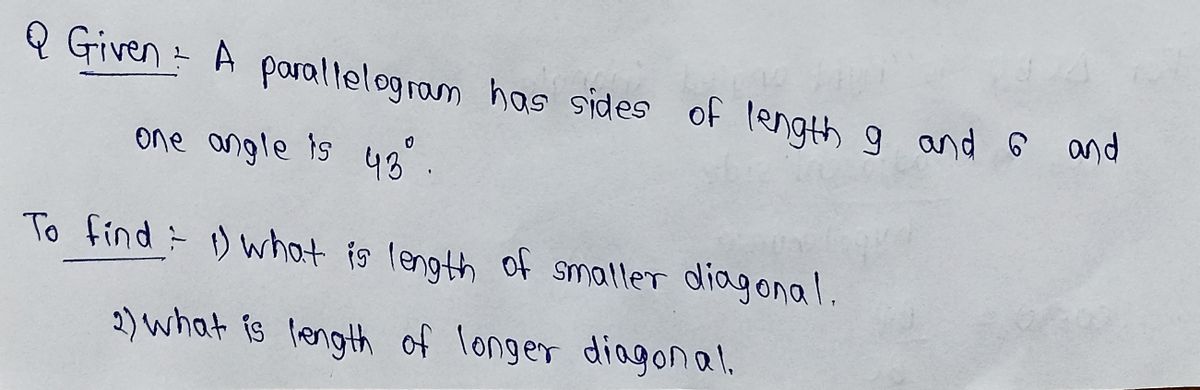 Q Given :- A parallelogram has sides of length 9 and 6 and
one angle is 43°.
To find :- 1) What is length of smaller diagonal.
2) What is length of longer diagonal.